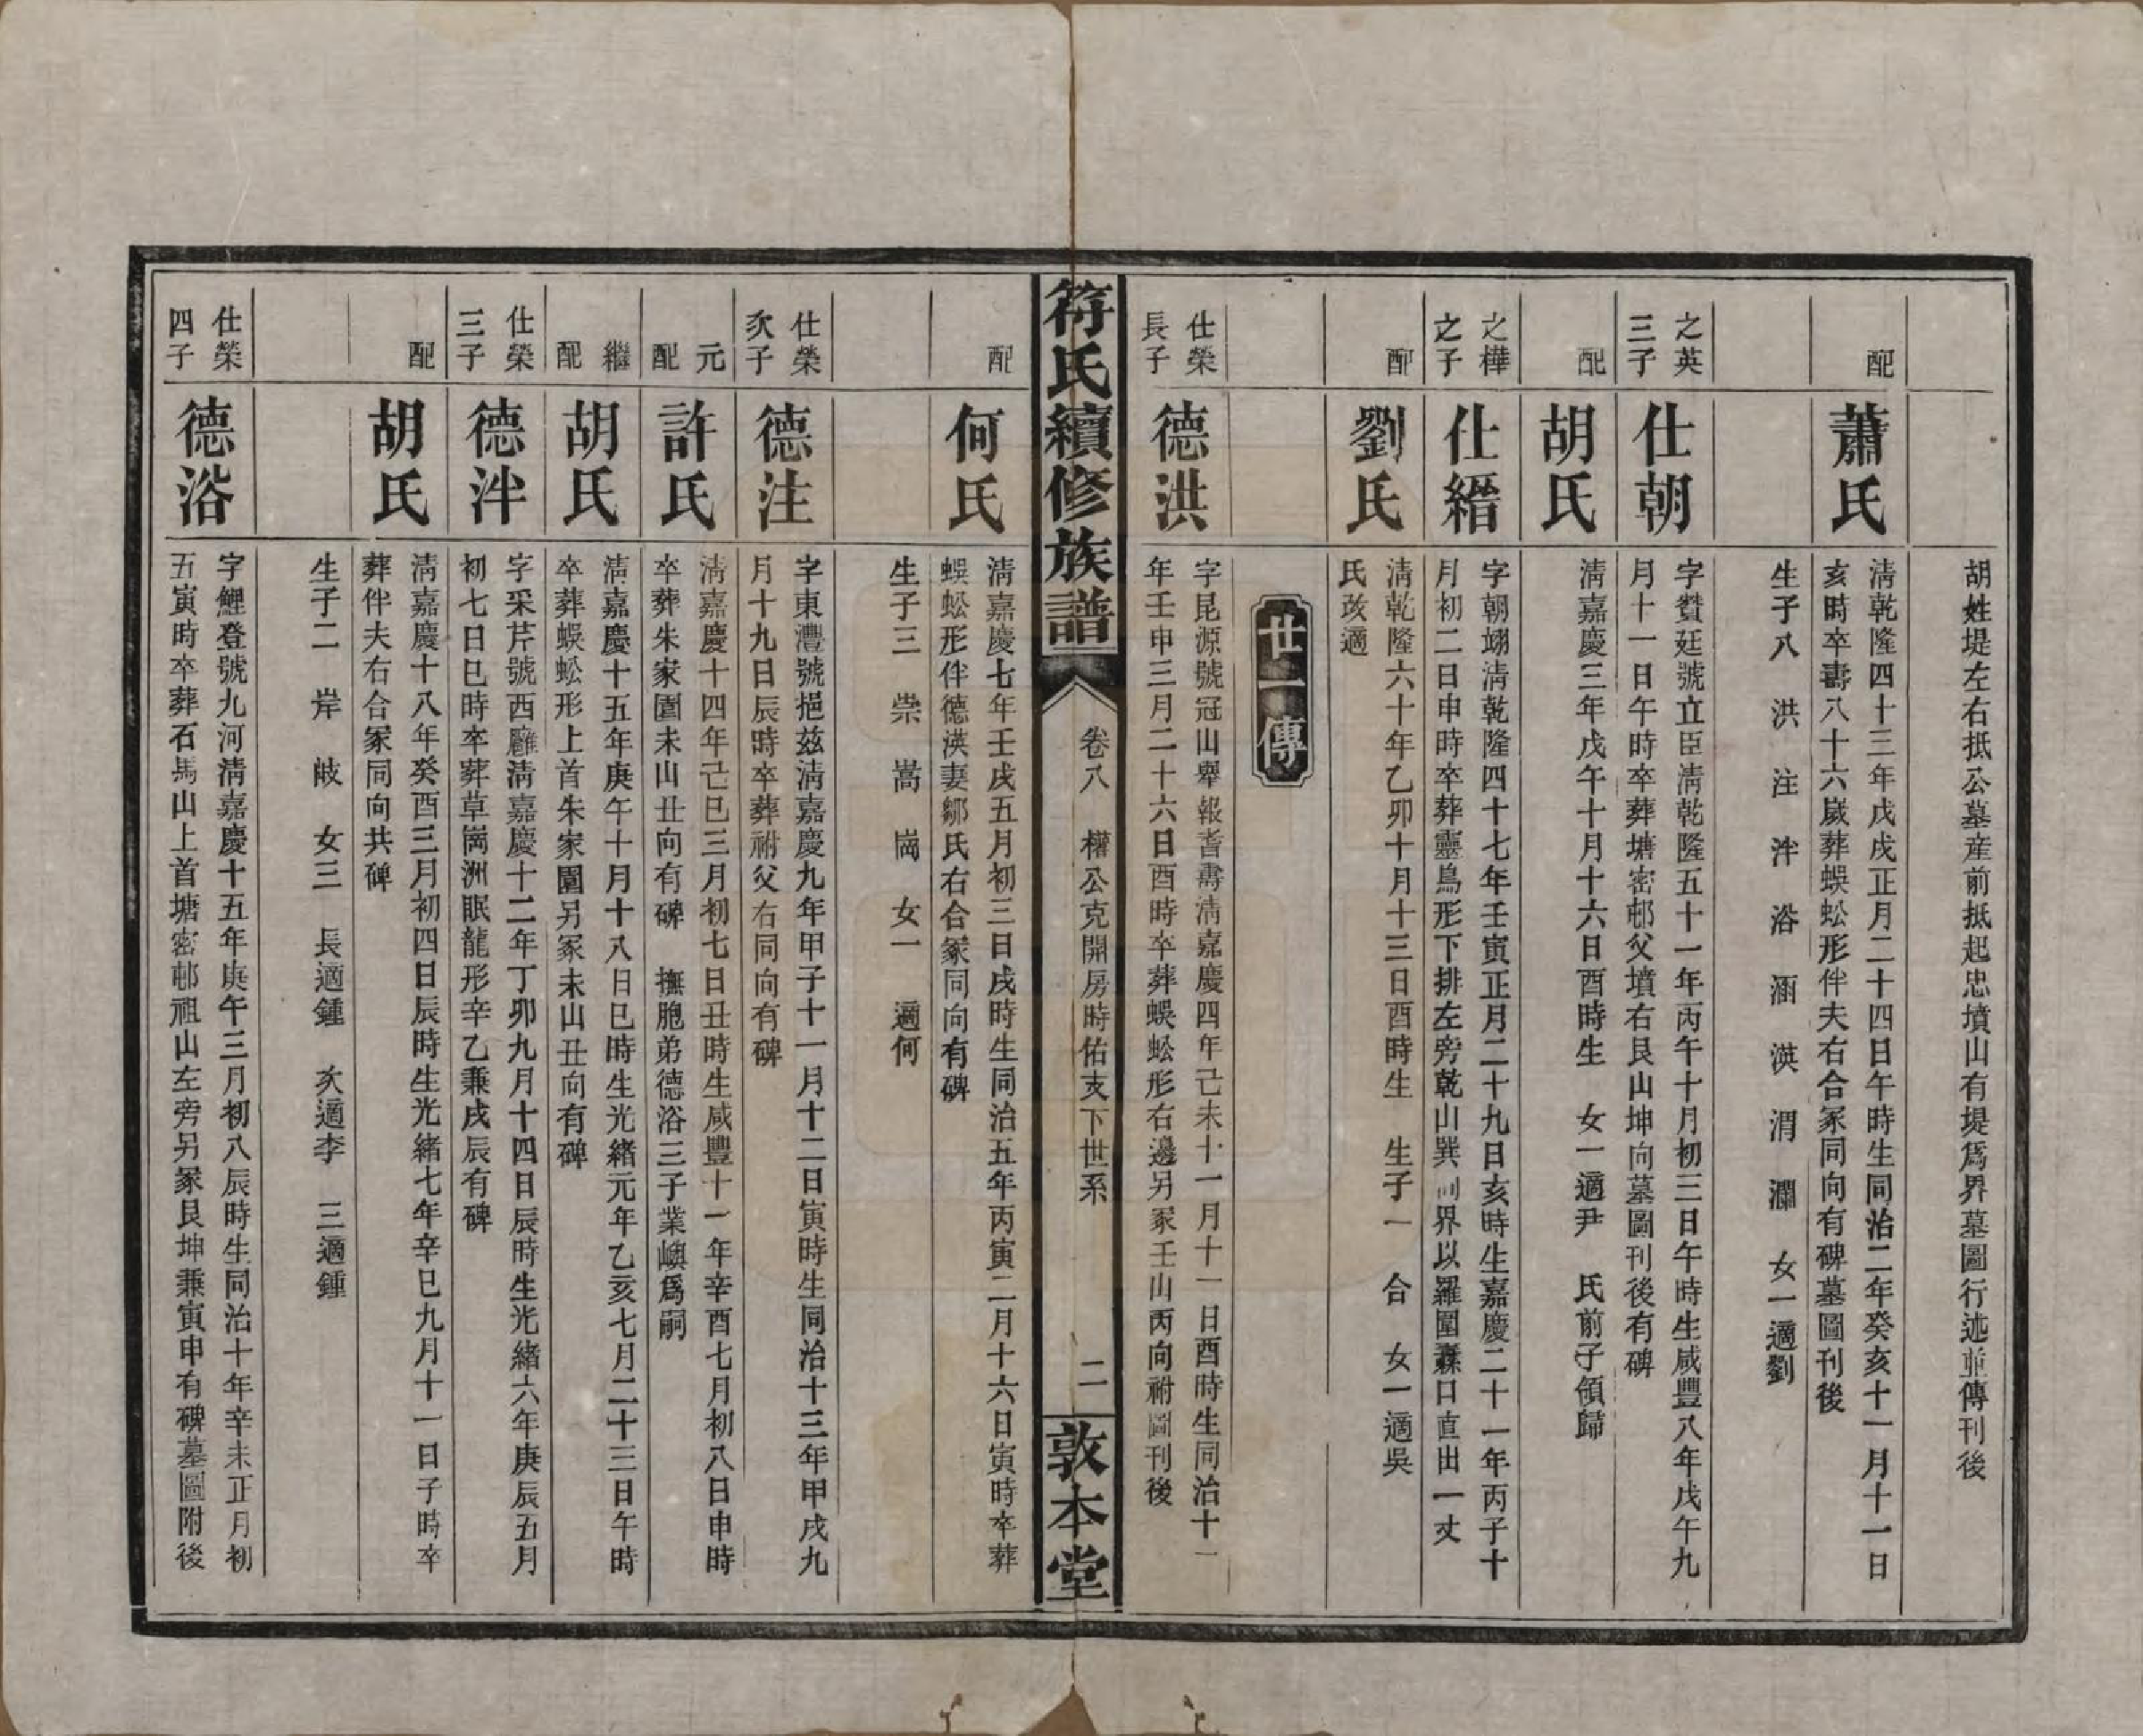 胡姓堤左右抵公墓産前抵起忠墳山有堤爲界墓圖行述並傳刊後
配
蕭氏
淸乾隆四十三年戊戌正月二十四日午時生同治二年癸亥十一月十一日
亥時卒壽八十六嵗葬蜈蚣形伴夫右合冢同向有碑墓圖刊後
生子八 洪 注 泮 浴 涵 漢 渭 瀾 女一適劉
之英
三子
仕朝
字贊廷號立臣淸乾隆五十一年丙午十月初三日午時生咸豐八年戊午九
月十一日午時卒葬塘密邨父墳右艮山坤向墓圖刊後有碑
配
胡氏
淸嘉慶三年戊午十月十六日酉時生 女一適尹 氏前子領歸
之樺
之子
仕縉
字朝翊淸乾隆四十七年壬寅正月二十九日亥時生嘉慶二十一年丙子十
月初二日申時卒葬靈鳥形下排左旁乾山巽向界以羅圍龢口直出一丈
配
劉氏
淸乾隆六十年乙卯十月十三日酉時生 生子一 合 女一適吳
氏改適
廿一傳
仕榮
長子
德洪
字昆源號冠山舉報耆壽淸嘉慶四年己未十一月十一日酉時生同治十一
年壬申三月二十六日酉時卒葬蜈蚣形右邊另冢壬山丙向祔圖刊後
符氏續修族譜
卷八 權公克開房時佑支下世系
二
敦本堂
配
何氏
淸嘉慶七年壬戌五月初三日戌時生同治五年丙寅二月十六日寅時卒葬
蜈蚣形伴德漢妻鄒氏右合冢同向有碑
生子三 崇 嵩 崗 女一 適何
仕榮
次子
德注
字東灃號挹茲淸嘉慶九年甲子十一月十二日寅時生同治十三年甲戌九
月十九日辰時卒葬祔父右同向有碑
元
配
許氏
淸嘉慶十四年己巳三月初七日丑時生咸豐十一年辛酉七月初八日申時
卒葬朱家園未山丑向有碑 撫胞弟德浴三子業嶼爲嗣
繼
配
胡氏
淸嘉慶十五年庚午十月十八日巳時生光緒元年乙亥七月二十三日午時
卒葬蜈蚣形上首朱家園另冢未山丑向有碑
仕榮
三子
德泮
字采芹號西廱淸嘉慶十二年丁卯九月十四日辰時生光緒六年庚辰五月
初七日巳時卒葬草崗洲眠龍形辛乙兼戌辰有碑
配
胡氏
淸嘉慶十八年癸酉三月初四日辰時生光緒七年辛巳九月十一日子時卒
葬伴夫右合冢同向共碑
生子二 岸 岐 女三 長適鍾 次適李 三適鍾
仕榮
四子
德浴
字鯉登號九河淸嘉慶十五年庚午三月初八辰時生同治十年辛未正月初
五寅時卒葬石馬山上首塘密邨祖山左旁另冢艮坤兼寅申有碑墓圖附後